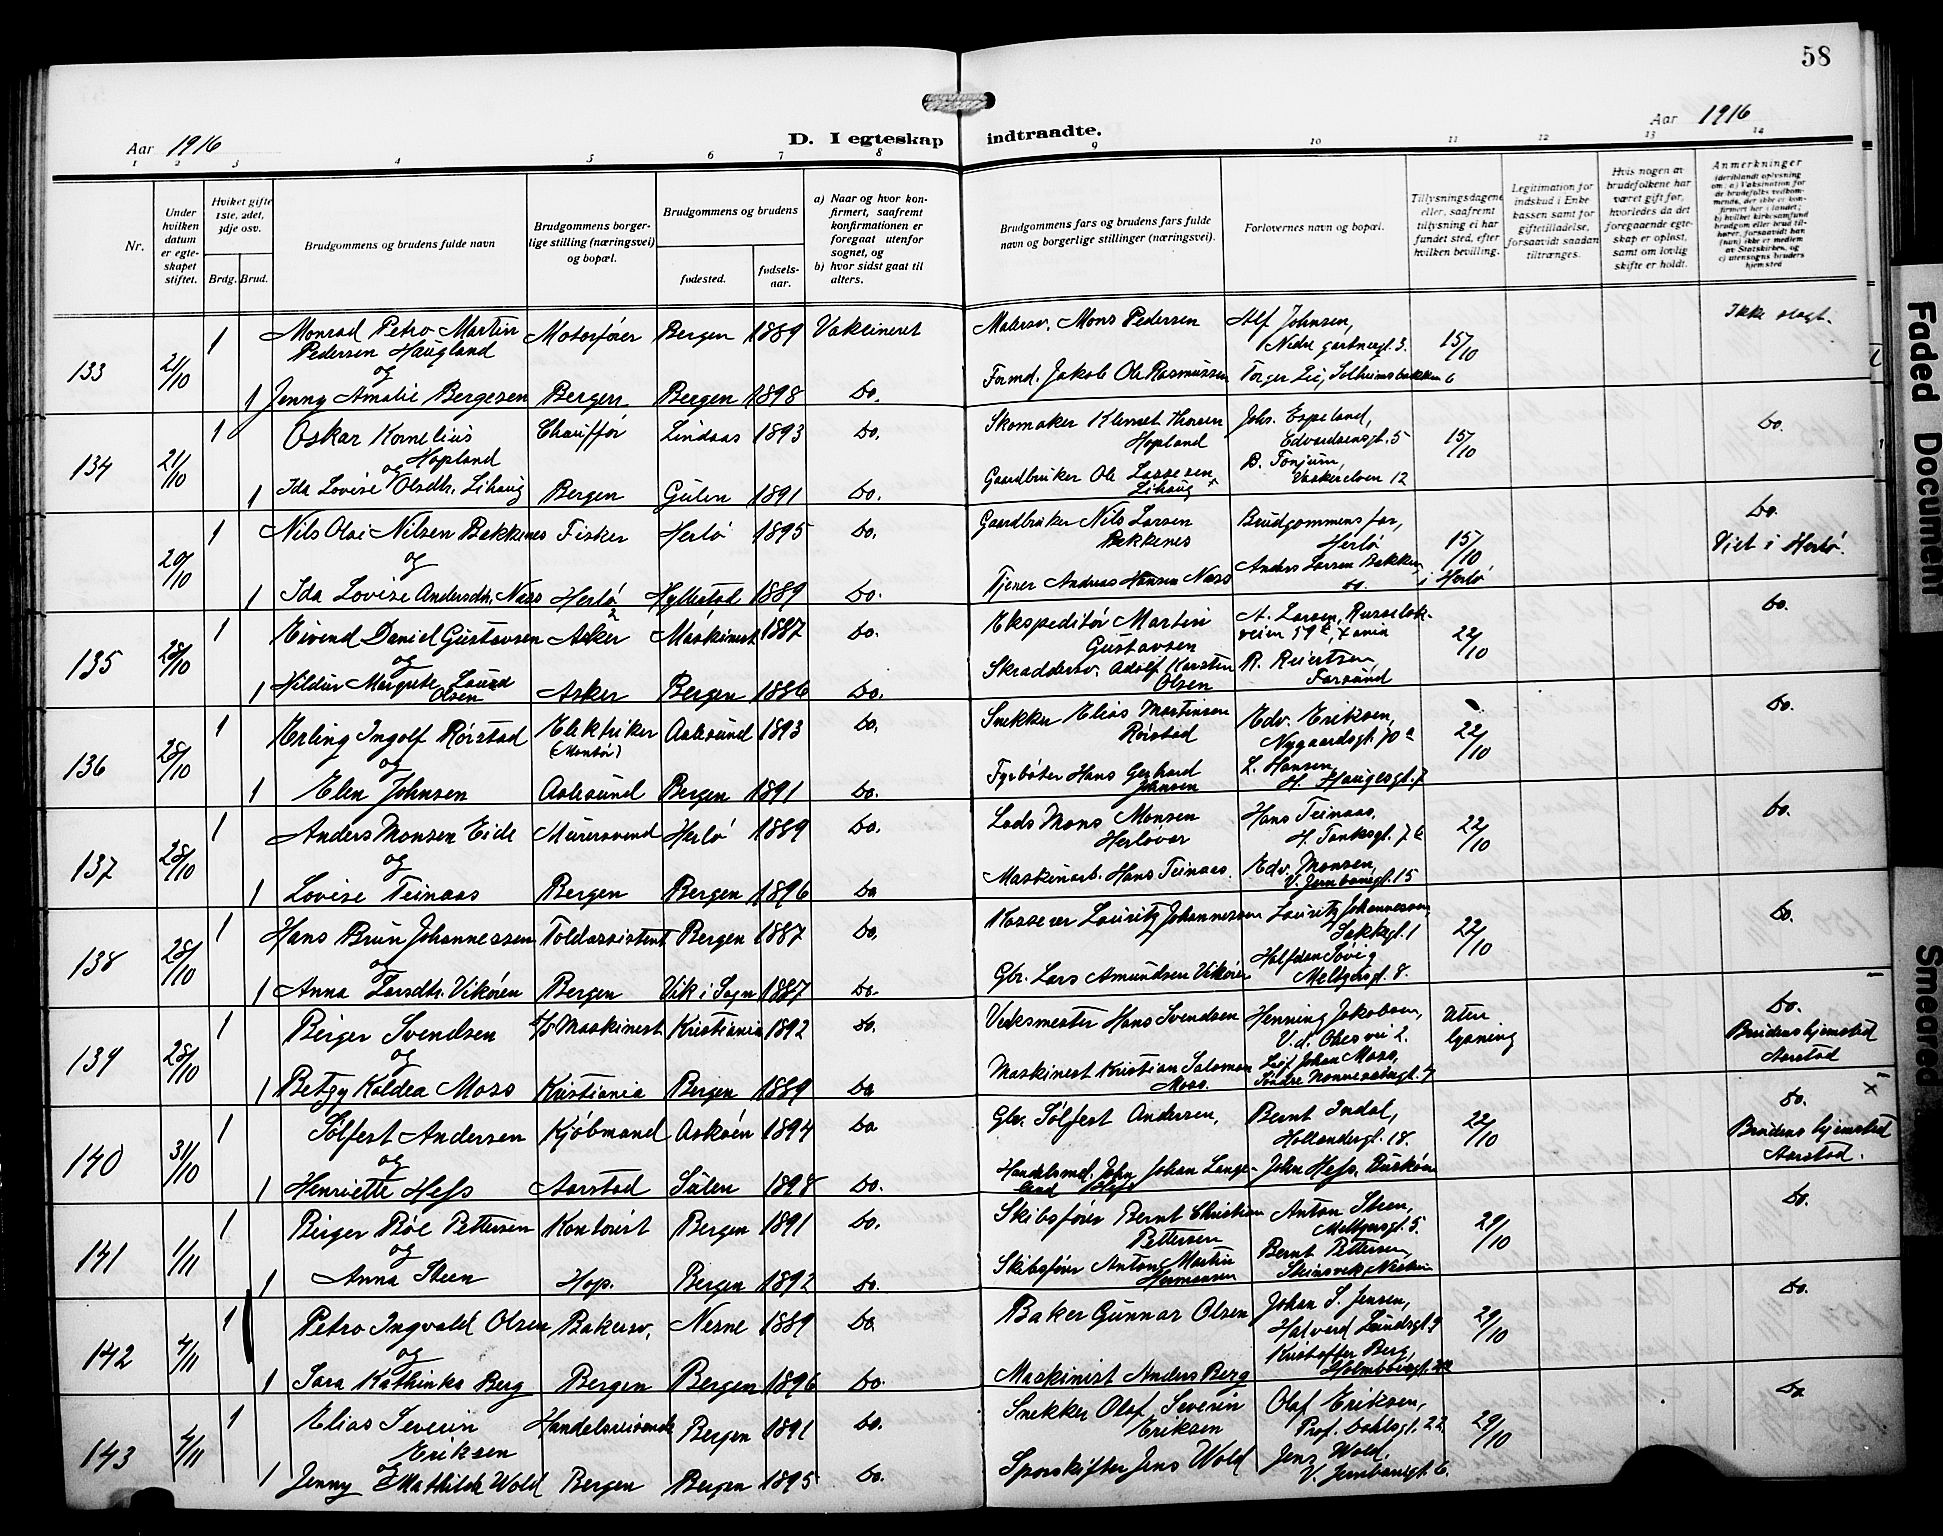 58
Aar 1916
D. I egteskap indtraadte.
Aar 1916
1 2 3 4 5 6 7 8 9 10 11 12 13 14
Nr.
Under hvilken datum er egte-skapet stiftet.
Hviket gifte 1ste, 2det, 3dje osv.
Brdg. Brud.
Brudgommens og brudens fulde navn
Brudgommens borger-lige stilling (næringsvei) og bopæl.
Brudgommens og brudens
fødested.
fødsels-aar.
a) Naar og hvor kon-firmert, saafremt konfirmationen er foregaat utenfor sognet, og
b) hvor sidst gaat til alters.
Brudgommens fars og brudens fars fulde navn og borgerlige stillinger (næringsvei).
Forlovernes navn og bopæl.
Tillysningsdagene eller, saafremt tillysning ei har fundet sted, efter hvilken bevilling.
Legitimation for indskud i Enke kassen samt for giftetilladelse, forsaavidt saadan tiltrænges.
Hvis nogen av brudefolkene har været gift før, hvorledes da det foregaaende egte-skap er opløst, samt om lovlig skifte er holdt.
Anmerkninger (deriblandt oplysning om: a) Vaksination for de brudefolks vedkom-mende, der ikke er kon-firmert her i landet; b) hvilket kirkesamfund brudgom eller brud til-hører, forsaavidt han (hun) ikke er medlem av Statskirken, og c) utensogns bruders hjemsted
133 21/10 1 Monrad Petro Martin Pedersen Haugland Motorfører Bergen 1889 Vaksineret Malersv. Mons Pedersen Alf Johnsen, Nedre gartnergt. 3. 15/10 Ikke slegt.
og
1 Jenny Amalie Bergesen Bergen Bergen 1898 Do. Formd. Jakob Ole Rasmussen Torger Lie, Solheimsbakken 6
134 21/10 1 Oskar Kornelius Hopland Chauffør Lindaas 1893 Do. Skomaker Klemet Thorsen Hopland Johs. Espeland, Edvardsensgt. 5 15/10 Do.
og
1 Ida Lovise Olsdtr. Lihaug Bergen Gulen 1891 Do. Gaardbruker Ole Lassesen Lihaug B. Tonjum, Vaskerelven 12
20/10 1 Nils Olai Nilsen Bakkenes Fisker Herlø 1895 Do. Gaardbruker Nils Larsen Bakkenes Brudgommens far, Herlø 15/10 i Herlø Do. Viet i Herlø.
og
1 Ida Lovise Andersdtr. Næss Herlø Hyllestad 1889 Do. Tjener Andreas Hansen Næss Anders Larsen Bakken, do.
135 28/10 1 Eivend Daniel Gustavsen Asker Maskinest 1887 Do. Ekspeditør Martin Gustavsen A. Larsen, 22/10 Do.
og
1 Hildur Margrete Laura Olsen Asker Bergen 1886 Do. Skræddersv. Adolf Karsten Olsen R. Reiertsen, Farsund
136 28/10 1 Erling Ingolf Rørstad Elektriker (Montør) Aalesund 1893 Do. Snekker Elias Martinsen Rørstad Edv. Eriksen, Nygaardsgt. 70 a 22/10 Do.
og
1 Elen Johnsen Aalesund Bergen 1891 Do. Fyrbøter Hans Gerhard Johnsen L. Hansen, H. Haugesgt. 7
137 28/10 1 Anders Monsen Eide Murersvend Herlø 1889 Do. Lods Mons Monsen Herløver Hans Teinaas, H. Tanksgt. 7 22/10 Do.
og
1 Lovise Teinaas Bergen Bergen 1896 Do Maskinarb. Hans Teinaas. Edv. Monsen, V. Jernbanegt. 15
138 28/10 1 Hans Brun Johannessen Toldassistent Bergen 1887 Do. Kasserer Lauritz Johannessen Lauritz Johannessen, Sakkegt. 1 22/10 Do.
og
1 Anna Larsdtr. Vikøren Bergen Vik i Sogn 1887 Do. Gbr. Lars Amundsen Vikøren Halfdan Søvig Meltzersgt. 8.
139 28/10 1 Birger Svendsen Maskinest Kristiania 1892 Do. Verksmester Hans Svendsen Henning Jakobsen, V. d. Ohes vei 2. Uten lysning Do. Brudens hjemsted Aarstad
og
1 Betzy Kaldea Moss Kristiania Bergen 1889 Do Maskinest Kristian Salomon Moss. Leif Johan Moss,
140 31/10 1 Sølfest Andersen Kjøbmand Askøen 1894 Do Gbr. Sølfest Andersen, Bernt Indal, Hollandergt. 18. 22/10 Do. Brudens hjemsted Aarstad.
og
1 Henriette Hess Aarstad Sulen 1898 Do. Handelsmd. John Johan Lange-land Hess John Hess, Buskøen
141 1/11 1 Birger Roe Pettersen Kontorist Bergen 1891 Do. Skibsfører Bernt Christian Pettersen Anton Steen, Meltzersgt. 5. 29/10 Do.
og
1 Anna Steen Hop. Bergen 1892 Do. Skibsfører Anton Martin Hermansen Bernt Pettersen,
142 4/11 1 Petro Ingvald Olsen Bakersv. Nesne 1889 Do. Baker Gunnar Olsen Johan S. Jensen, Halvard Lundsgt. 9 29/10 Do.
og
1 Sara Kathinka Berg Bergen Bergen 1896 Do. Maskinist Anders Berg Kristoffer Berg,
143 4/11 1 Elias Severin Eriksen Handelsreisende Bergen 1891 Do. Snekker Olaf Severin Eriksen Olaf Eriksen, Prof. Dahlsgt. 22. 29/10 Do
og
1 Jenny Mathilde Wold Bergen Bergen 1895 Do. Sporskifter Jens Wold Jens Wold, V. Jernbanegt. 6.
Faded Document
Smeared